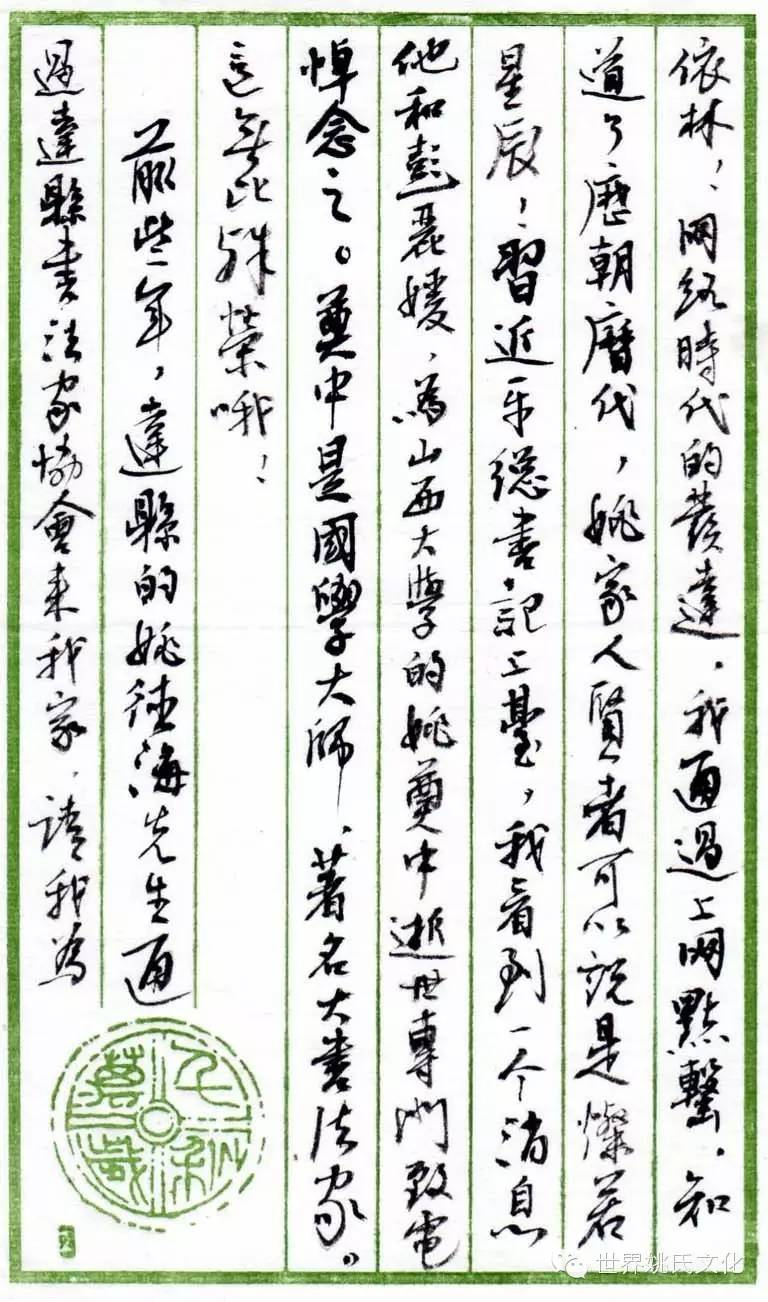 依林！網絡時代的發達，我通過上网點擊，知
道了歷朝歷代，姚家人賢者可以說是燦若
星辰！習近平總書記上臺，我看到一个消息
他和彭麗媛，為山西大學的姚奠中逝世專門致電
悼念之。奠中是國學大師、著名大書法家。
這無比殊榮哦！
前些年，達縣的姚德海先生通
過達縣書法家協會來我家，請我為
千秋萬歲
世界姚氏文化